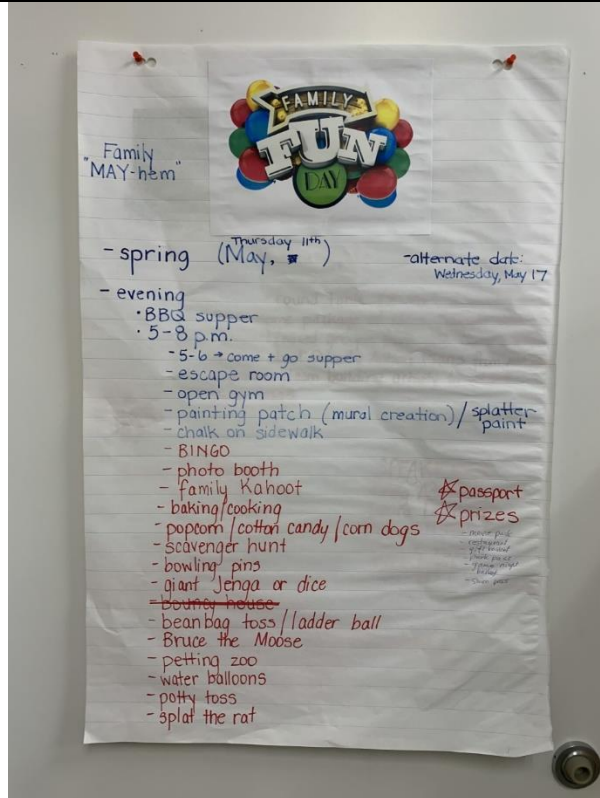 FAMILY
FUN
DAY
Family
"MAY-hem"
- spring (May, Thursday 11th)
- alternate date:
Wednesday, May 17
- evening
• BBQ supper
• 5-8 p.m.
- 5-6 → come + go supper
- escape room
- open gym
- painting patch (mural creation) / splatter
paint
- chalk on sidewalk
- BINGO
- photo booth
- family Kahoot
- baking/cooking
- popcorn / cotton candy / corn dogs
- scavenger hunt
- bowling pins
- giant Jenga or dice
- bouncy house
- bean bag toss / ladder ball
- Bruce the Moose
- petting zoo
- water balloons
- potty toss
- splat the rat
☆ passport
☆ prizes
- movie pack
- restaurant